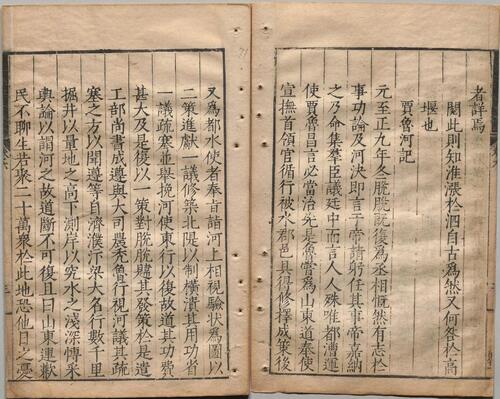 者詳焉
閱此則知淮漲於泗自古爲然又何咎於高
堰也
賈魯河記
元至正九年冬脫脫旣復爲丞相慨然有志於
事功論及河決卽言于帝請躬任其事帝嘉納
之乃命集羣臣議廷中而言人人殊唯都漕運
使賈魯昌言必當治先是魯嘗爲山東道奉使
宣撫首領官循行被水郡邑具得修捍成策後
又爲都水使者奉旨詣河上相視驗狀爲圖以
二策進獻一議修築北隄以制橫潰其用功省
一議疏塞並舉挽河使東行以復故道其功費
甚大及是復以二策對脫脫韙其後策於是遣
工部尚書成遵與大司農禿魯行視河議其疏
塞之方以聞遵等自濟濮汴梁大名行數千里
掘井以量地之高下測岸以究水之淺深博采
輿論以謂河之故道斷不可復且曰山東連歉
民不聊生若聚二十萬衆於此地恐他日之憂